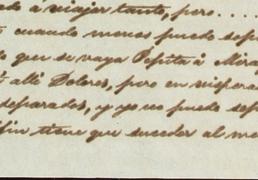 ado á viajar tanto, pero....
cuando menos puede sepa
que se vaya Pepita á Mira
allí Dolores, pero en víspera
separados, y yo no puedo sep
fin tiene que suceder al me